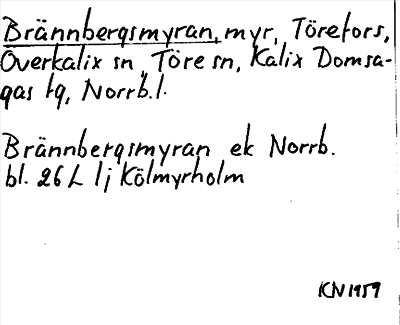 Brännbergsmyran, myr, Törefors,
Överkalix sn, Töre sn, Kalix Domsa-
gas tg, Norrb.l.
Brännbergsmyran ek Norrb.
bl. 26 L lj Kölmyrholm
KN 1959